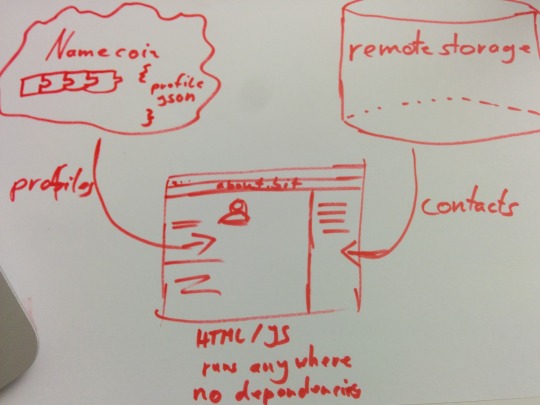 Namecoin
{
profile
json
}
remotestorage
profiles
about.bit
contacts
HTML/JS
runs anywhere
no dependencies